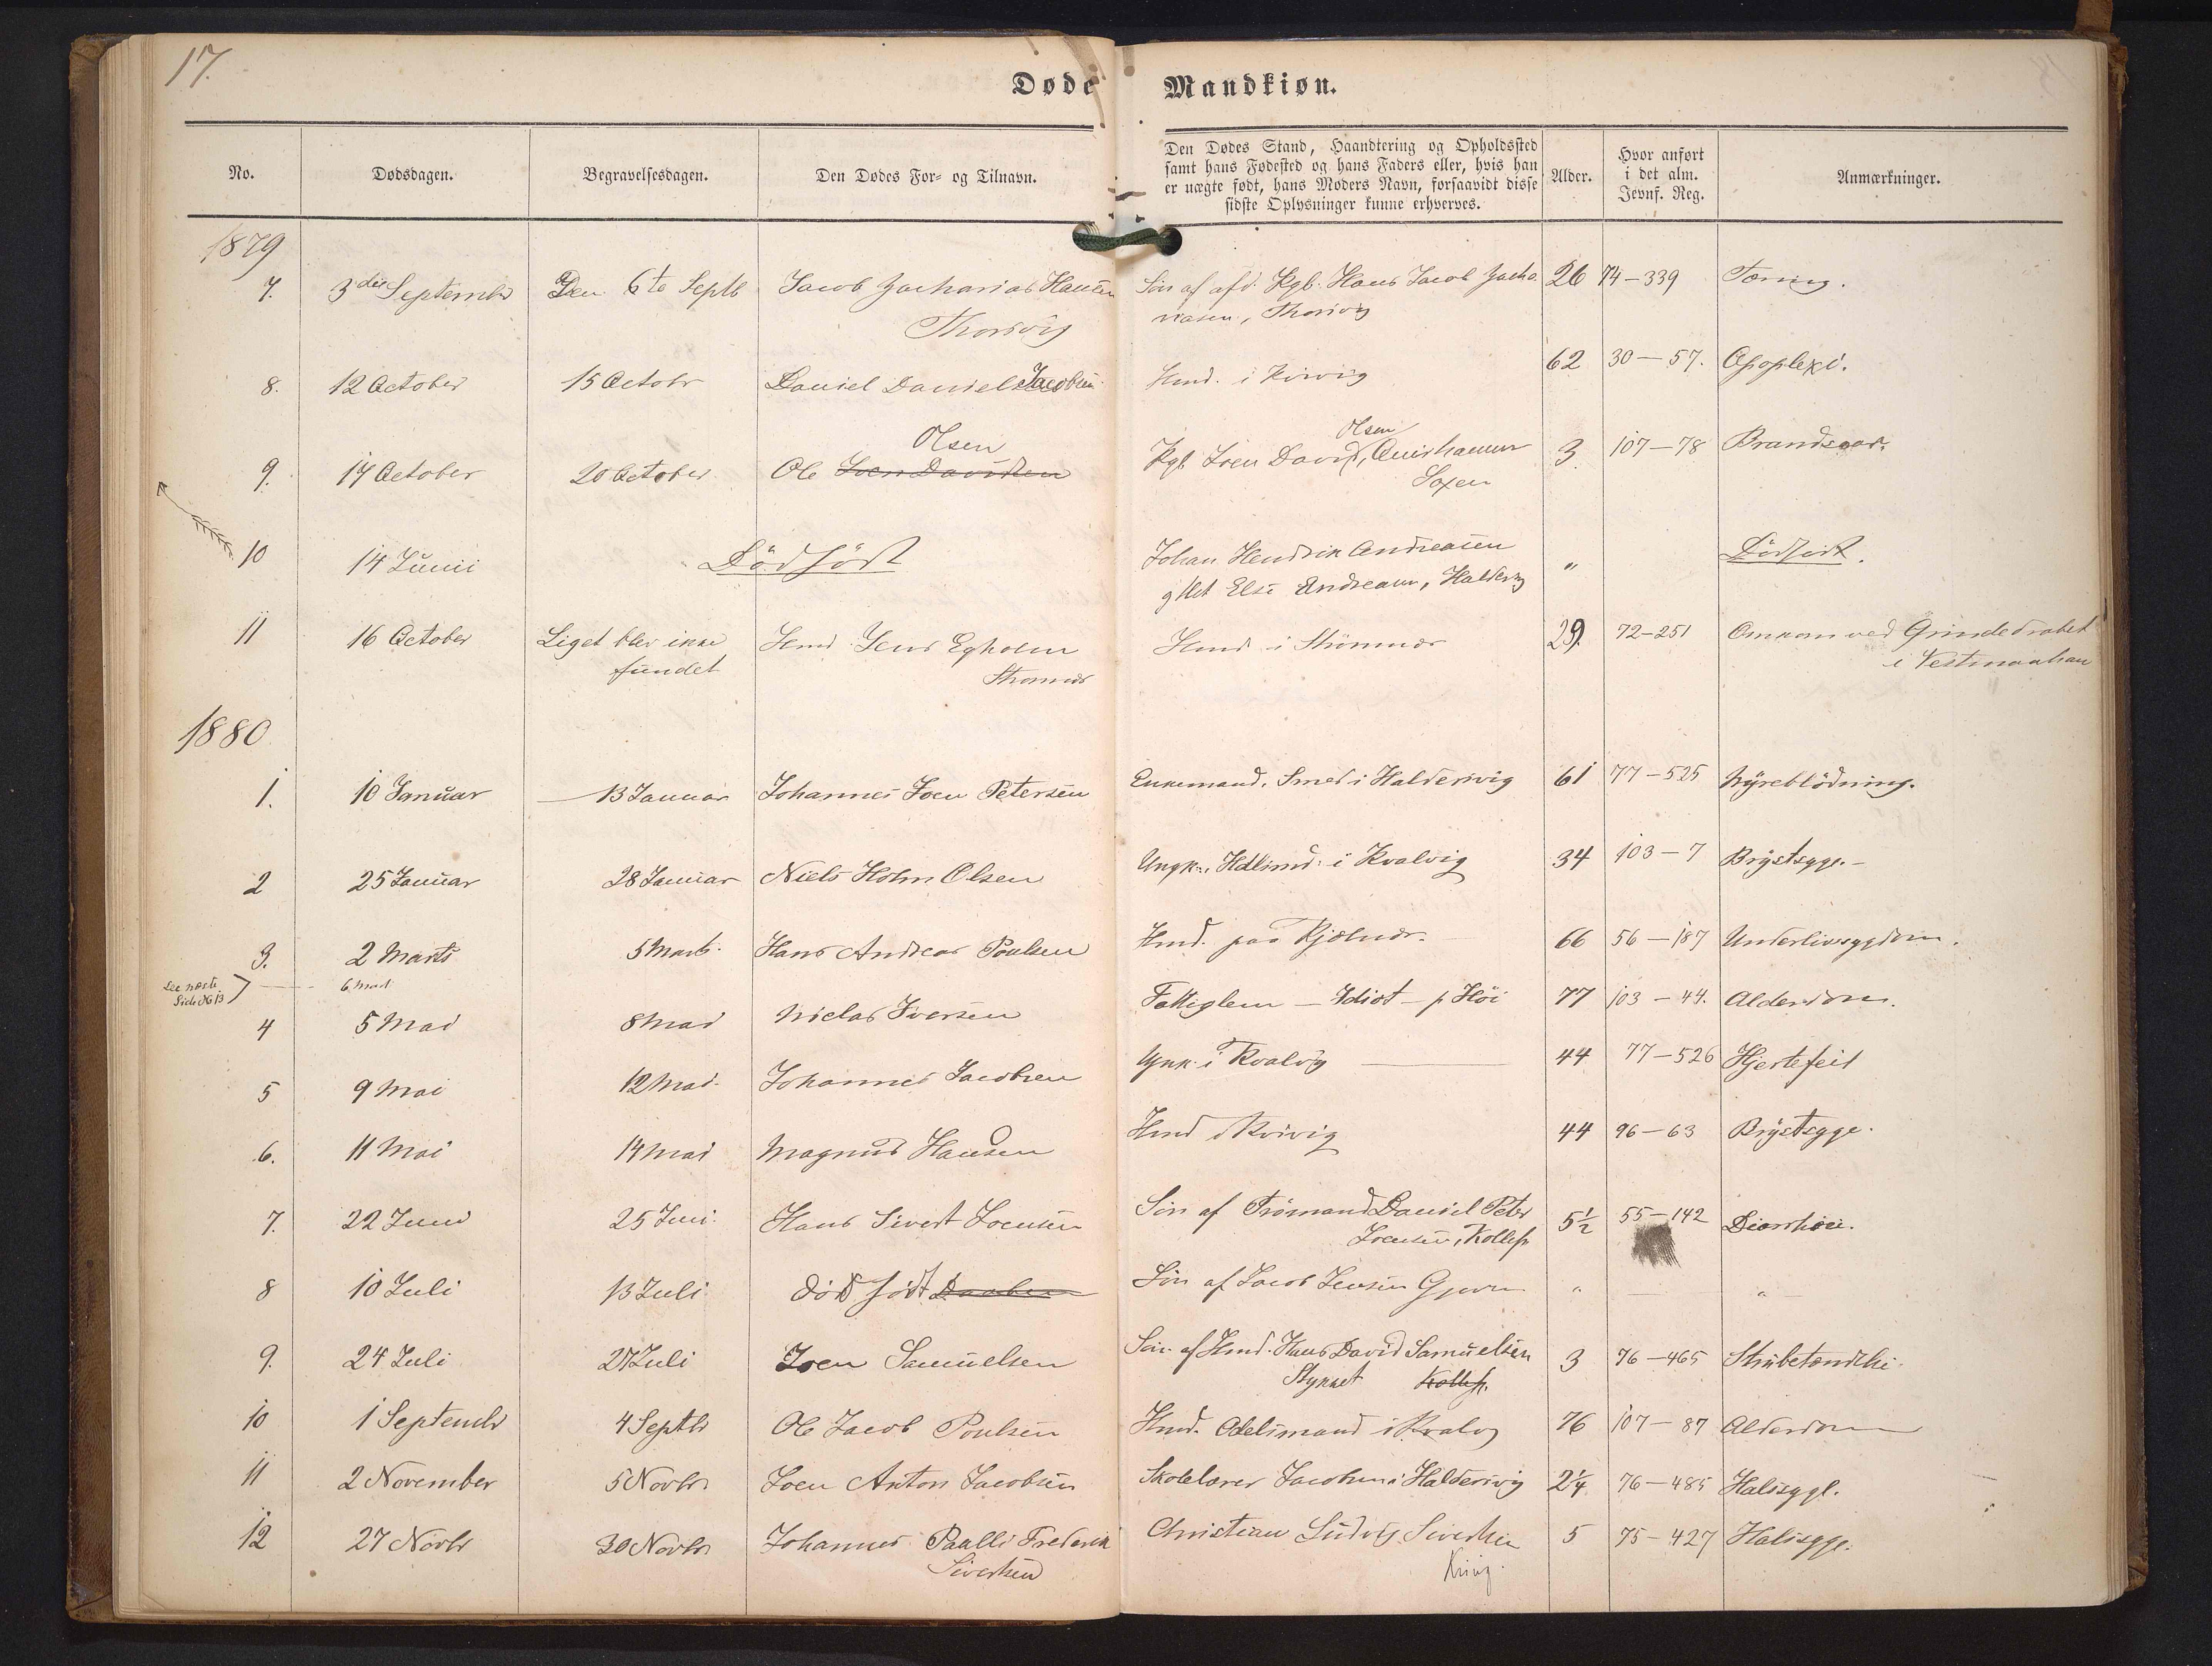 17.
Døde Mandkiøn.
No.
Dødsdagen.
Begravelsesdagen.
Den Dødes For- og Tilnavn.
Den Dødes Stand, Haandtering og Opholdssted
samt hans Fødested og hans Faders eller, hvis han
er uægte født, hans Moders Navn, forsaavidt disse
sidste Oplysninger kunne erhverves.
Alder.
Hvor anført
i det alm.
Jevnf. Reg.
Anmærkninger.
1879
7. 3die September Den 6te Septb Jacob Zacharias Hansen Søn af afd. Kgb. Hans Jacob Zacha 26 74-339 Tæring.
Thorsvig riasen, Thorsvig
8. 12 October 15 Octobr Daniel Daniel Jacobsen Hmd. i Kvivig 62 30-57. Apoplexi.
Olsen Olsen
9. 17 October 20 October Ole Joen Davidsen Kgb Joen David, Quishamm 3. 107-78 Brandsaar.
Saxen
10 14 Junii Dødfødt Johan Hendrik Andreasen " Dødfødt.
Else Andreasen, Haldersvig
11 16 October Liget blev ikke Hmd Jens Egholm Hmd i Strømnæs 29. 72-251 Omkom ved Grindedrabet
fundet Strømnæs i Vestmanhavn
1880
1. 10 Januar 13 Januar Johannes Joen Petersen Enkemand, Smed i Haldersvig 61 77-525 Nyreblødning.
2 25 Januar 28 Januar Niels Holm Olsen Ungk., i Kvalvig 34 103-7 Brystsyge.-
3. 2 Marts 5 Marts. Hans Andreas Poulsen Hmd. paa Kjælnær. 66 56-187 Underlivssygdom.
See næste 6 Mart
Side No 13
4 5 Mai 8 Mai Niclas Iversen Fattiglem - Idiot - p Høi 77 103-44. Alderdom.
5 9 Mai 12 Mai. Johannes Jacobsen Ynk. i Kvalvig 44 77-526 Hjertefeil
6. 11 Mai 14 Mai Magnus Hansen Hmd i Kvivig 44 96-63 Brystsyge.
7. 22 Juni 25 Juni. Hans Sivert Joensen Søn af Trømand Daniel Peter 5½ 55-142 Diarrhøe.
Joensen, Kollefj.
8 10 Juli 13 Juli død født Søn af Jacob Jensen Gjovn " "
9. 24 Juli 27 Juli Joen Samuelsen Søn af Hmd. Hans David Samuelsen 3 76-465 Strubetændelse.
Stykket Kollefj.
10 1 Septembr 4 Septbr Ole Jacob Poulsen Hmd. Odelsmand i Kvalvig 76 107-87 Alderdom
11 2 November 5 Novbr Joen Anton Jacobsen Skolelærer Jacobsen i Haldersvig 2¼ 76-485 Halssyge.
12 27 Novbr 30 Novbr Johannes Paulli Frederik Christian Ludvig Sivertsen 5 75-427 Halssyge.
Sivertsen Kvivig.